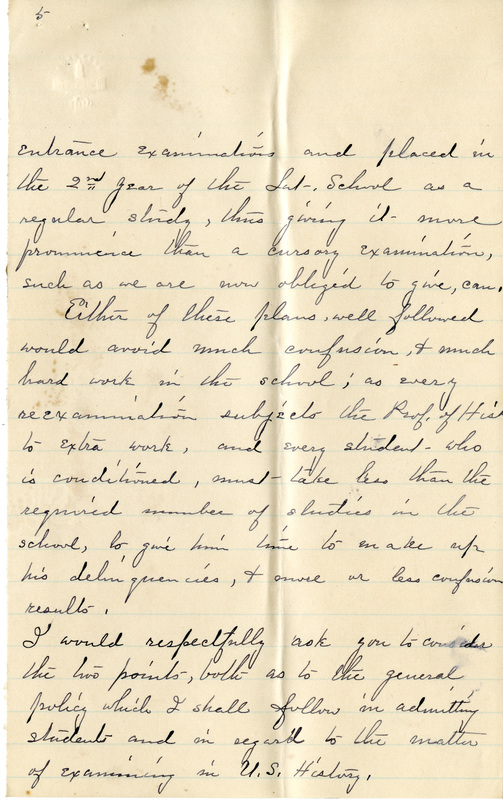 5
entrance examinations and placed in
the 2nd year of the Lat. School as a
regular study, thus giving it more
prominence than a cursory examination,
such as we are now obliged to give, can.
Either of these plans, well followed
would avoid much confusion, & much
hard work in the school; as every
reexamination subjects the Prof. of Hist
to extra work, and every student who
is conditioned, must take less than the
required number of studies in the
school, to give him time to make up
his delinquencies, & more or less confusion
results.
I would respectfully ask you to consider
the two points, both as to the general
policy which I shall follow in admitting
students and in regard to the matter
of examining in U.S. History.